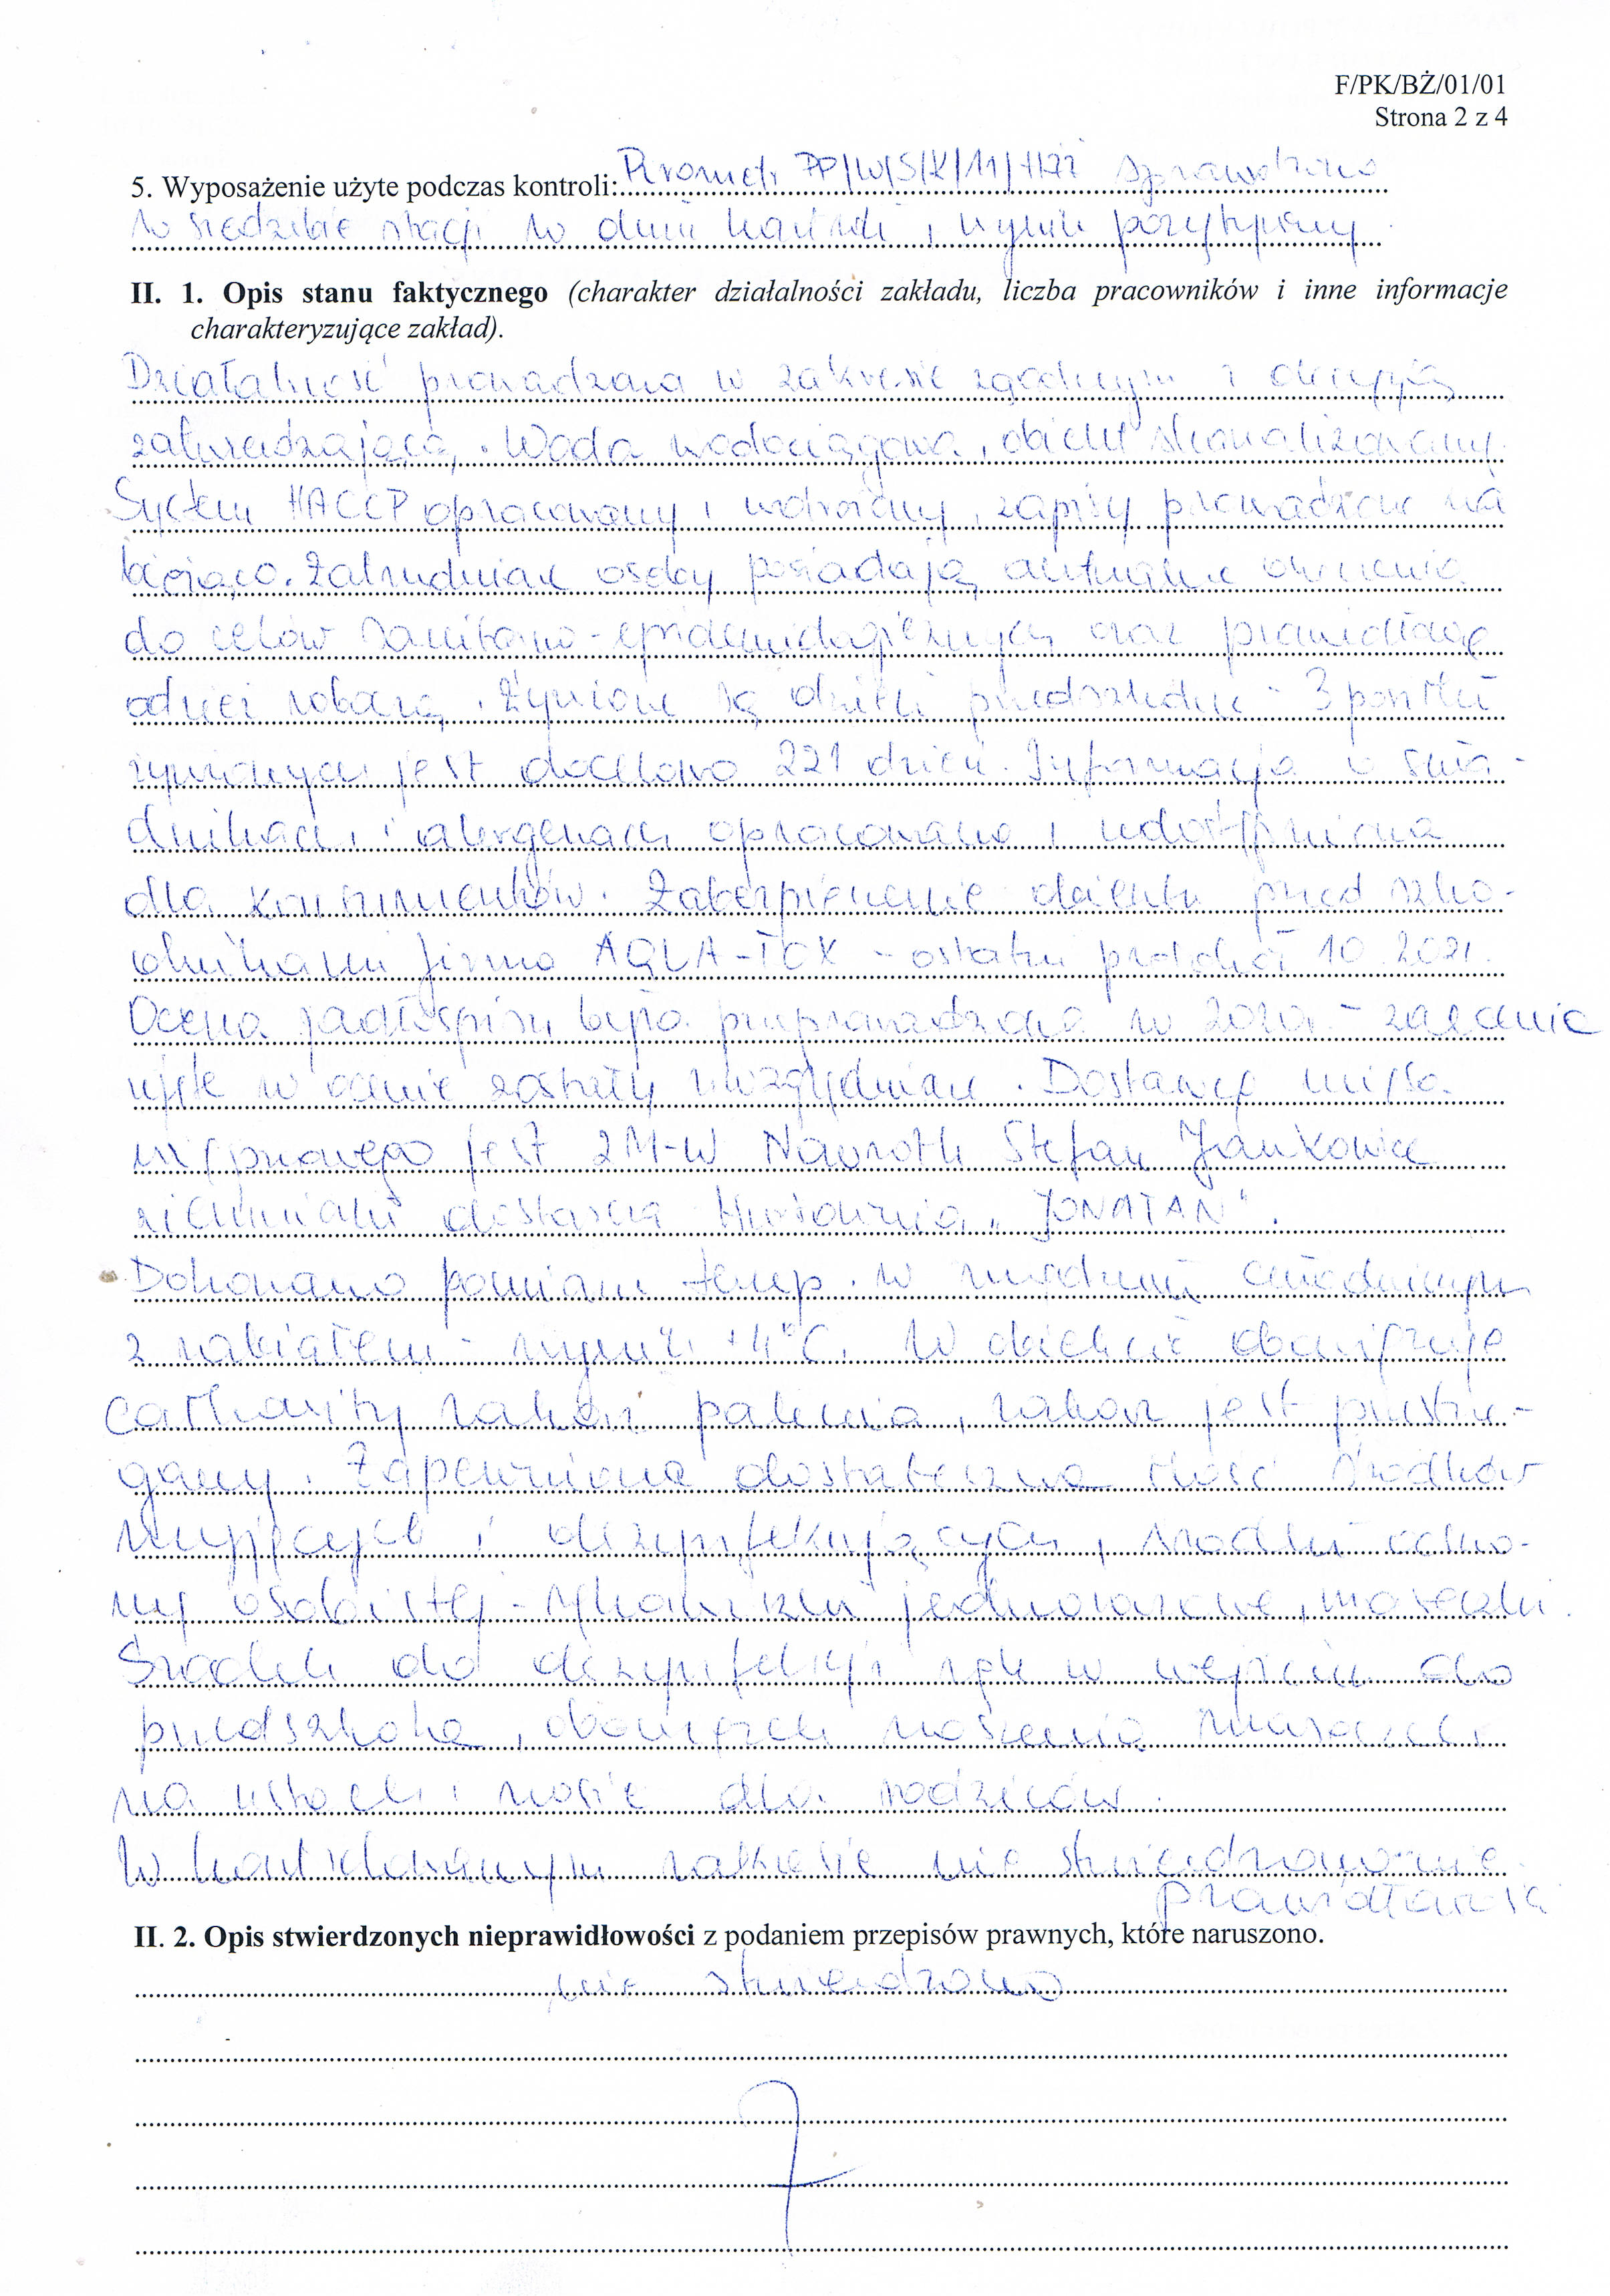 F/PK/BŻ/01/01
Strona 2 z 4
5. Wyposażenie użyte podczas kontroli: Pirometr PP/W/S/K/11/ sprawdzono
w siedzibie stacji w dniu kontroli, wynik pozytywny.
II. 1. Opis stanu faktycznego (charakter działalności zakładu, liczba pracowników i inne informacje
charakteryzujące zakład).
Działalność prowadzona w zakresie zgodnym z decyzją
zatwierdzającą. Woda wodociągowa, obiekt skanalizowany.
System HACCP opracowany i wdrożony, zapisy prowadzone na
bieżąco. Zatrudnione osoby posiadają aktualne orzeczenia
do celów sanitarno-epidemiologicznych oraz prawidłową
odzież roboczą. Żywione są dzieci przedszkolne - 3 posiłki
żywionych jest docelowo 221 dzieci. Informacja o skła-
dnikach i alergenach opracowana i udostępniona
dla konsumentów. Zabezpieczenie obiektu przed szko-
dnikami firma AQUA-TOX - ostatni protokół 10.2021.
Ocena jadłospisu była przeprowadzona w 2020r. - zalecenia
ujęte w ocenie zostały uwzględnione. Dostawcą mięsa
wieprzowego jest 2M-W Nawroth Stefan Jankowice
ziemniaki dostarcza Hurtownia "JONATAN".
Dokonano pomiaru temp. w urządzeniu chłodniczym
z nabiałem - wynik +4°C. W obiekcie obowiązuje
całkowity zakaz palenia, zakaz jest przestrze-
gany. Zapewniona dostateczna ilość środków
myjących i dezynfekujących, środki ochro-
ny osobistej - rękawiczki jednorazowe, maseczki.
Środek do dezynfekcji rąk w wejściu do
przedszkola, obowiązek noszenia maseczki
na ustach i nosie dla rodziców.
W kontrolowanym zakresie nie stwierdzono nie
prawidłowości
II. 2. Opis stwierdzonych nieprawidłowości z podaniem przepisów prawnych, które naruszono.
nie stwierdzono